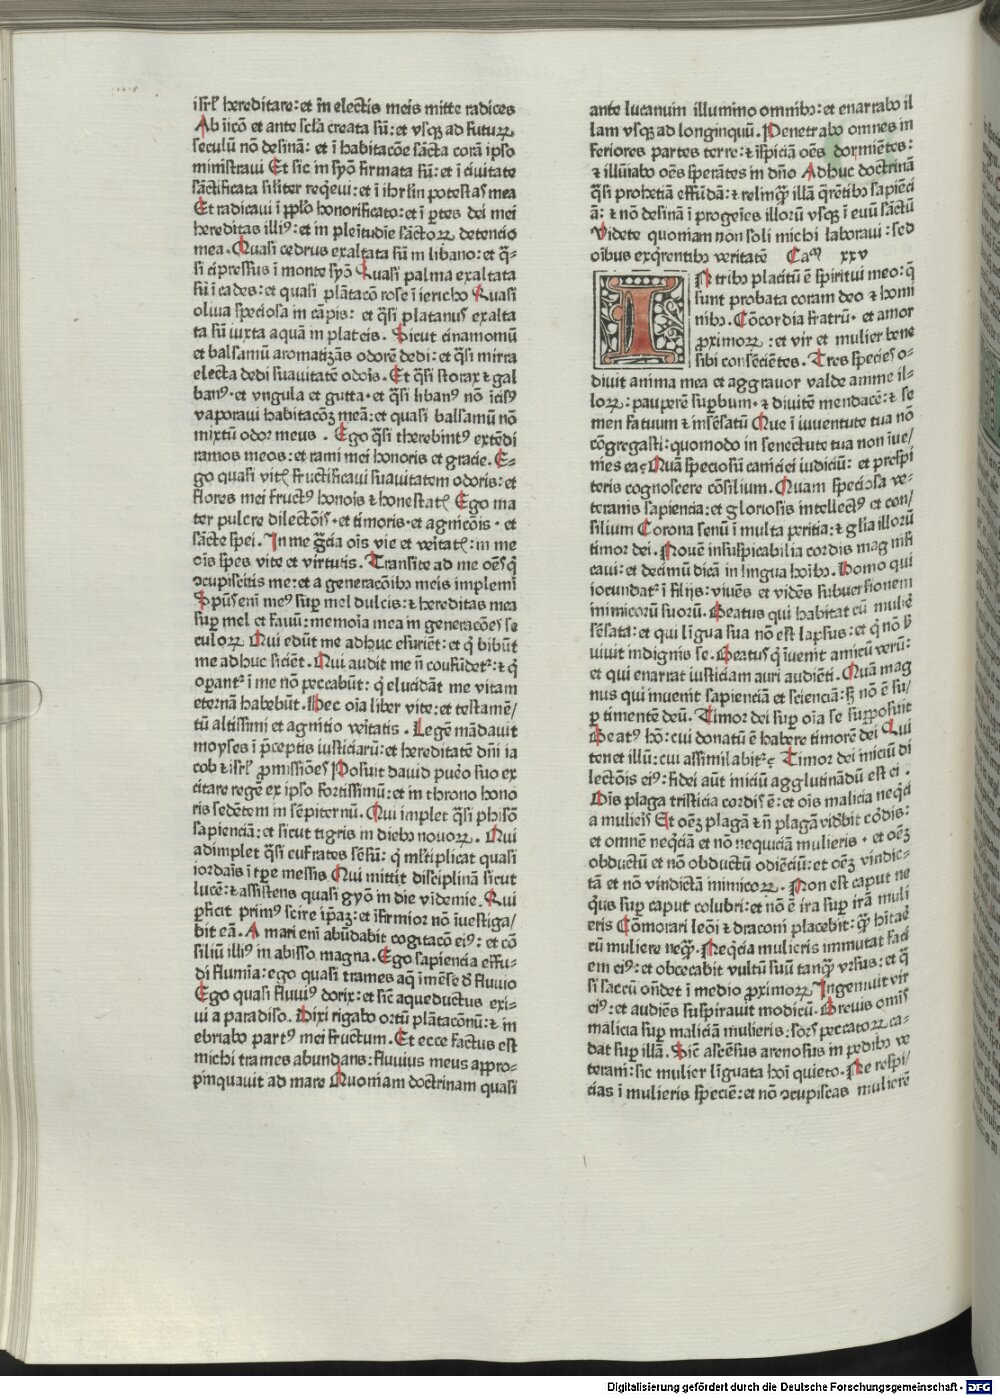 isrl̄ hereditare: et in electis meis mitte radices
Ab īicō et ante scl̄a creata sū: et vsq̄ ad futuꝝ
seculū nō desinā: et ī habitacōe sācta corā ipso
ministraui Et sic in syō firmata sū: et ī ciuitate
sāctificata siliter req̄eui: et ī ihrl̄m potestas mea
Et radicaui ī pplo honorificato: et ī ꝑtes dei mei
hereditas illiꝰ: et in pleītudīe sāctoꝝ detencio
mea. Quasi cedrus exaltata sū in libano: et q̄-
si cipressus ī monte syō Quasi palma exaltata
sū ī cades: et quasi plātacō rose ī iericho Quasi
oliua speciosa in cāpis: et q̄si platanus exalta
ta sū iuxta aquā in plateis. Sicut cinamomū
et balsamū aromatizās odorē dedi: et q̄si mirra
electa dedi suauitatē odoīs. Et q̄si storax ⁊ gal
banꝰ · et vngula et gutta · et q̄si libanꝰ nō īcisꝰ
vaporaui habitacōꝫ meā: et quasi balsamū nō
mixtū odor meus . Ego q̄si therebintꝰ extēdi
ramos meos: et rami mei honoris et gracie. E-
go quasi vitꝭ fructificaui suauitatem odoris: et
flores mei fructꝰ honoīs ⁊ honestatꝭ Ego ma
ter pulcre dilectōīs · et timoris · et agnicōīs · et
sācte spei. In me gr̄cia oīs vie et vēitatꝭ: in me
oīs spes vite et virtutis. Transite ad me oēs q̄
ↄcupiscitis me: et a generacōibꝰ meis implemī
Spūs enī meꝰ suꝑ mel dulcis: ⁊ hereditas mea
suꝑ mel et fauū: memoīa mea in generacōes se
culoꝝ Qui edūt me adhuc esuriēt: et q̄ bibūt
me adhuc siciēt. Qui audit me n̄ cōfūdetꝰ: ⁊ q̄
oꝑantꝰ ī me nō peccabūt: q̄ elucidāt me vitam
eternā habebūt. Hec oīa liber vite: et testamē/
tū altissimi et agnitio vēitatis . Legē mādauit
moyses ī p̄ceptis iusticiarū: et hereditatē dn̄i ia
cob ⁊ isrl̄ ꝓmissiōes Posuit dauid puēo suo ex
citare regē ex ipso fortissimū: et in throno hono
ris sedētem in sēpiternū. Qui implet q̄si phisō
sapienciā: et sicut tigris in diebꝰ nouoꝝ . Qui
adimplet q̄si eufrates sēsū: q̄ ml̄tiplicat quasi
iordaīs ī tꝑe messis Qui mittit disciplinā sicut
lucē: ⁊ assistens quasi gyō in die videmie. Qui
ꝑficit primꝰ scire ip̄aꝫ: et īfirmior nō īuestiga/
bit eā. A mari enī abūdabit cogitacō eiꝰ: et cō
siliū illiꝰ in abisso magna. Ego sapiencia effu-
di flumīa: ego quasi trames aq̄ īmēse d̄ fluuio
Ego quasi fluuiꝰ dorix: et sic̄ aqueductus exi-
ui a paradiso. Dixi rigabo ortū plātacōnū: ⁊ in
ebriabo partꝰ mei fructum. Et ecce factus est
michi trames abundans: fluuius meus appro-
pinquauit ad mare Quoniam doctrinam quasi
ante lucanum illumino omnibꝰ: et enarrabo il
lam vsq̄ ad longinquū. Penetrabo omnes in
feriores partes terre: ⁊ īspiciā oēs dormiētes:
⁊ illūiabo oēs sperātes in dn̄o Adhuc doctrinā
q̄si prohetiā effūdā: ⁊ relinq̄ illā q̄rētibꝰ sapiēci
ā: ⁊ nō desinā ī progeīes illorū vsq̄ ī euū sāctū
Videte quoniam non soli michi laboraui: sed
oībus exq̄rentibꝰ veritatē Caᵐ xxv
IN tribꝰ placitū ē spiritui meo: q̄
sunt probata coram deo ⁊ homi
nibꝰ. Cōcordia fratrū · et amor
ꝓximoꝝ : et vir et mulier bene
sibi consēciētes. Tres species o-
diuit anima mea et aggrauor valde anime il-
loꝝ: pauperē suꝑbum · ⁊ diuitē mendacē: ⁊ se
nem fatuum ⁊ insēsatū Que ī iuuentute tua nō
cōgregasti: quomodo in senectute tua non īue/
nies ea? Quā speciosū canīciei iudiciū: et presbi
teris cognoscere cōsilium. Quam speciosa ve-
teranis sapiencia: et gloriosis intellectꝰ et con/
silium Corona senū ī multa peritia: ⁊ gl̄ia illorū
timor dei. Nouē insuspicabilia cordis magnifi
caui: et decimū dicā in lingua hoībꝰ. Homo qui
iocundatꝰ ī filijs: viuēs et vidēs subuersionem
inimicorū suorū. Beatus qui habitat cū muliē
sēsata: et qui līgua sua nō est lapsus: et q̄ nō s̄
uiuit indignis se. Beatus q̄ īuenit amicū verū:
et qui enarrat iusticiam auri audiēti. Quā mag
nus qui inuenit sapienciā et scienciā: sꝫ nō ē su/
ꝑ timentē deū. Timor dei suꝑ oīa se surposuit
Beatꝰ hō: cui donatū ē habere timorē dei Qui
tenet illū: cui assimilabitꝰ? Timor dei iniciū di
lectōīs eiꝰ: fidei aūt iniciū agglutinādū est ei .
Oīs plaga tristicia cordis ē: et oīs malicia neq̄ci
a mulieīs Et oēꝫ plagā ⁊ n̄ plagā vidbit cōdis:
et omnē neq̄ciā et nō nequiciā mulieris · et oēꝫ
obductū et nō obductū odiēciū: et oēꝫ vindic-
tā et nō vindictā inimicoꝝ . Non est caput ne
q̄us suꝑ caput colubri: et nō ē ira suꝑ irā muli
eris Cōmorari leōī ⁊ draconi placebit: q̄ꝫ hītaē
cū muliere neq̄ꝫ. Neq̄cia mulieris immutat faci
em eiꝰ: et obcecabit vultū suū tanq̄ꝫ vrsus: et q̄
si saccū ōndet ī medio ꝓximoꝝ Ingemuit vir
eiꝰ: et audiēs suspirauit modicū. Breuis omīs
malicia suꝑ maliciā mulieris: sors peccatoꝝ ca-
dat suꝑ illā. Sic̄ ascēsus arenosus in pedibꝰ ve
terani: sic mulier līguata hoī quieto. Ne respi/
cias ī mulieris speciē: et nō ↄcupiscas mulierē
Digitalisierung gefördert durch die Deutsche Forschungsgemeinschaft - DFG